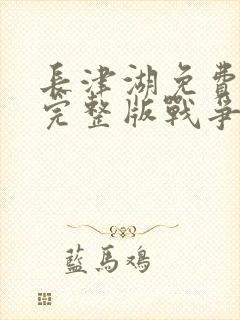 長津湖免費
完整版戰爭
藍馬鴻